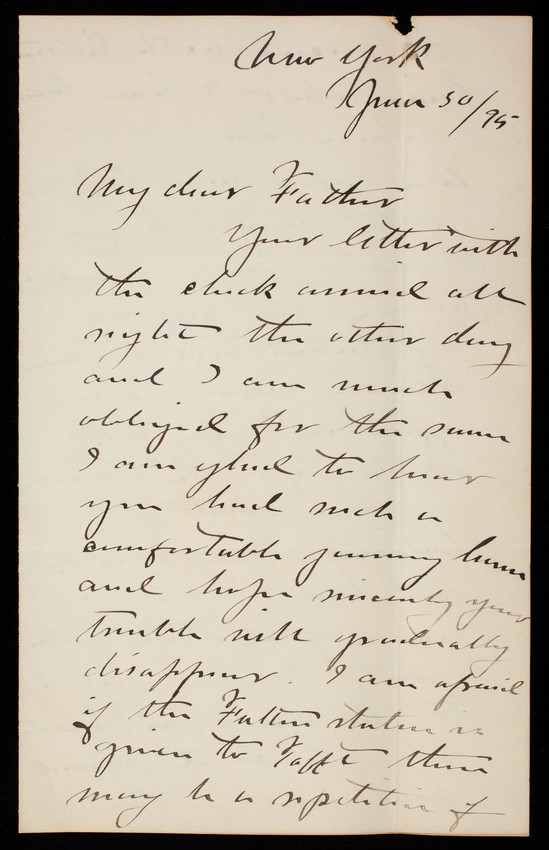 New York
June 30/95
My dear Father
Your letter with
the check arrived all
right the other day
and I am much
obliged for the same
I am glad to hear
you had such a
comfortable journey home
and hope sincerely your
trouble will gradually
disappear. I am afraid
if the Fulton statue is
given to Tafft there
may be a repetition of